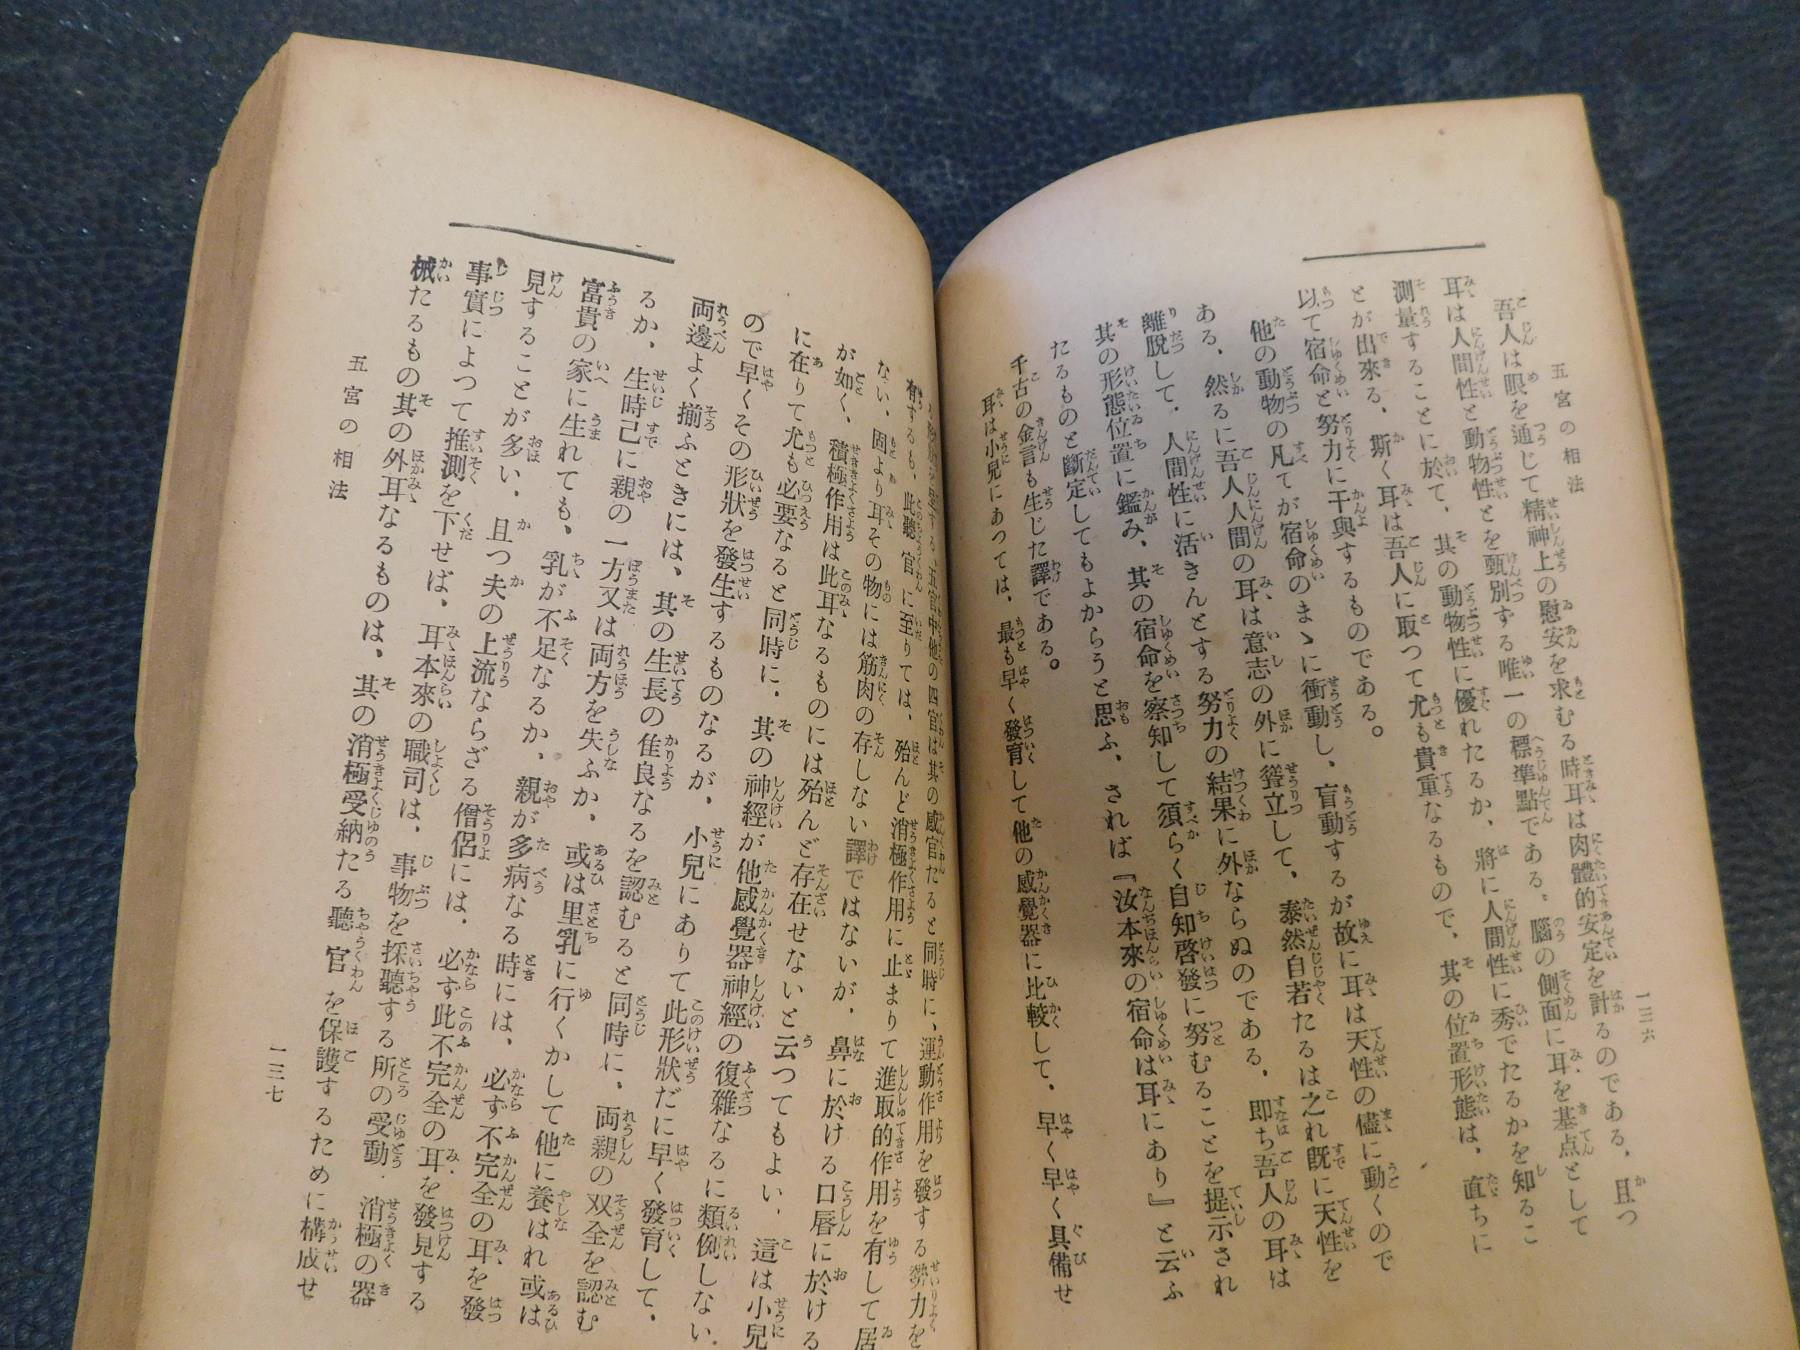 五官の相法
一三六
吾人は眼を通じて精神上の慰安を求むる時耳は肉體的安定を計るのである、且つ
耳は人間性と動物性とを甄別する唯一の標準點である、腦の側面に耳を基点として
測量することに於て、其の動物性に優れたるか、將に人間性に秀でたるかを知るこ
とが出來る、斯く耳は吾人に取つて尤も貴重なるもので、其の位置形態は、直ちに
以て宿命と努力に干與するものである。
他の動物の凡てが宿命のまゝに衝動し、盲動するが故に耳は天性の儘に動くので
ある、然るに吾人人間の耳は意志の外に聳立して、泰然自若たるは之れ既に天性を
離脱して、人間性に活きんとする努力の結果に外ならぬのである、即ち吾人の耳は
其の形態位置に鑑み、其の宿命を察知して須らく自知啓發に努むることを提示され
たるものと斷定してもよからうと思ふ、されば『汝本來の宿命は耳にあり』と云ふ
千古の金言も生じた譯である。
耳は小兒にあつては、最も早く發育して他の感覺器に比較して、早く早く具備せ
五官中他の四官は其の感官たると同時に、運動作用を發する勢力を
有するも、此聽官に至りては、殆んど消極作用に止まりて進取的作用を有して居
ない、固より耳その物には筋肉の存しない譯ではないが、鼻に於ける口唇に於ける
が如く、積極作用は此耳なるものには殆んど存在せないと云つてもよい、這は小兒
に在りて尤も必要なると同時に、其の神經が他感覺器神經の復雜なるに類例しない
ので早くその形狀を發生するものなるが、小兒にありて此形狀だに早く發育して、
両邊よく揃ふときには、其の生長の佳良なるを認むると同時に、両親の双全を認む
るか、生時己に親の一方又は両方を失ふか、或は里乳に行くかして他に養はれ或は
富貴の家に生れても、乳が不足なるか、親が多病なる時には、必ず不完全の耳を發
見することが多い、且つ夫の上流ならざる僧侶には、必ず此不完全の耳を發見する
事實によつて推測を下せば、耳本來の職司は、事物を採聽する所の受動、消極の器
械たるもの其の外耳なるものは、其の消極受納たる聽官を保護するために構成せ
五宮の相法
一三七